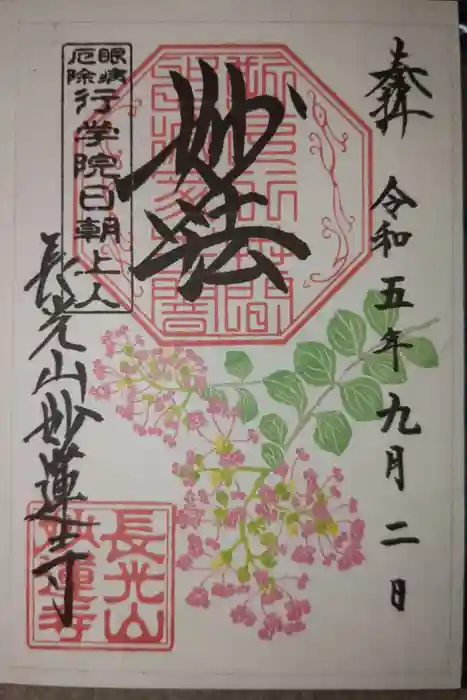 奉拝
令和五年九月二日
妙法
眼病
厄除
行学院日朝上人
長光山妙蓮寺
長光山
妙蓮寺